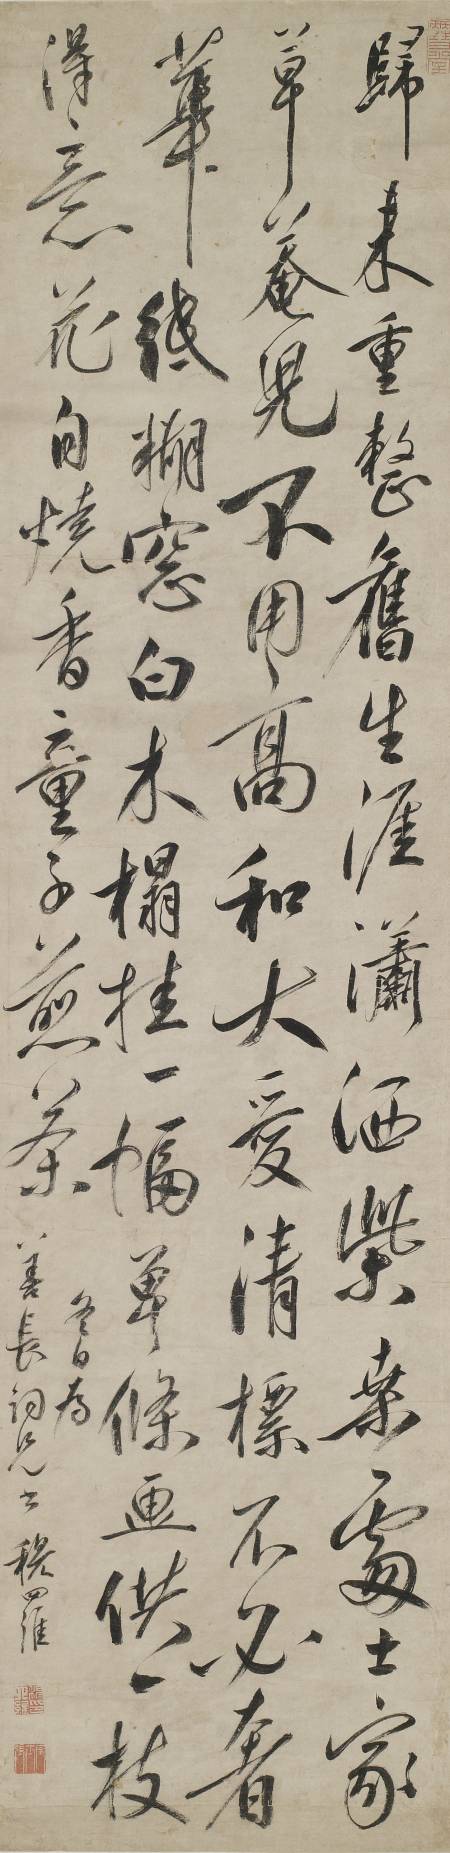 歸來重整舊生涯瀟洒柴桑處士家
草菴兒不用高和大愛清標不必奢
華紙糊窓白木榻挂一幅單條畫供一枝
得意花自燒香童子煎茶
冬日為
善長詞兄書 穆羅